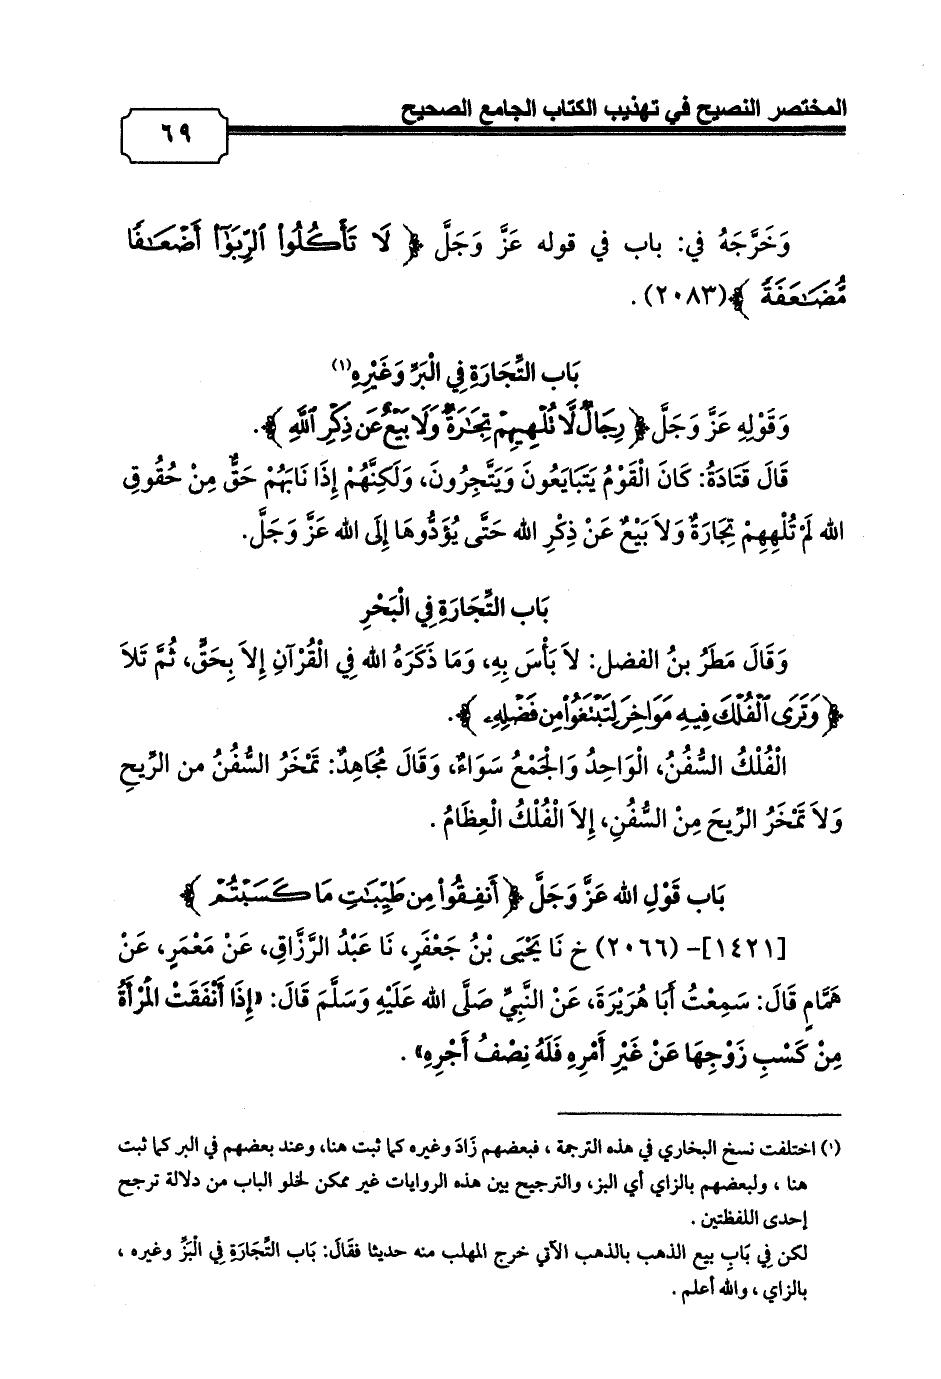 المختصر النصيح في تهذيب الكتاب الجامع الصحيح
٦٩
وَخَرَّجَهُ في: باب في قوله عَزَّ وَجَلَّ ﴿ لَا تَأْكُلُوا۟ ٱلرِّبَوٰٓا۟ أَضْعَـٰفًا
مُّضَـٰعَفَةً ﴾(٢٠٨٣).
بَاب التِّجَارَةِ فِي الْبَرِّ وَغَيْرِهِ(١)
وَقَوْلِهِ عَزَّ وَجَلَّ ﴿ رِجَالٌ لَّا تُلْهِيهِمْ تِجَـٰرَةٌ وَلَا بَيْعٌ عَن ذِكْرِ ٱللَّهِ ﴾.
قَالَ قَتَادَةُ: كَانَ الْقَوْمُ يَتَبَايَعُونَ وَيَتَّجِرُونَ، وَلَكِنَّهُمْ إِذَا نَابَهُمْ حَقٌّ مِنْ حُقُوقِ
الله لَمْ تُلْهِهِمْ تِجَارَةٌ وَلاَ بَيْعٌ عَنْ ذِكْرِ الله حَتَّى يُؤَدُّوهَا إِلَى الله عَزَّ وَجَلَّ.
بَاب التِّجَارَةِ فِي الْبَحْرِ
وَقَالَ مَطَرُ بنُ الفضل: لاَ بَأْسَ بِهِ، وَمَا ذَكَرَهُ الله فِي الْقُرْآنِ إِلاَ بِحَقٍّ، ثُمَّ تَلاَ
﴿ وَتَرَى ٱلْفُلْكَ فِيهِ مَوَاخِرَ لِتَبْتَغُوا۟ مِن فَضْلِهِۦ ﴾.
الْفُلْكُ السُّفُنُ، الْوَاحِدُ وَالْجَمْعُ سَوَاءٌ، وَقَالَ مُجَاهِدٌ: تَمْخَرُ السُّفُنُ من الرِّيحِ
وَلاَ تَمْخَرُ الرِّيحَ مِنْ السُّفُنِ، إِلاَ الْفُلْكُ الْعِظَامُ .
بَاب قَوْلِ الله عَزَّ وَجَلَّ ﴿ أَنفِقُوا۟ مِن طَيِّبَـٰتِ مَا كَسَبْتُمْ ﴾
[١٤٢١]- (٢٠٦٦) خ نَا يَحْيَى بْنُ جَعْفَرٍ، نَا عَبْدُ الرَّزَّاقِ، عَنْ مَعْمَرٍ، عَنْ
هَمَّامٍ قَالَ: سَمِعْتُ أَبَا هُرَيْرَةَ، عَنْ النَّبِيِّ صَلَّى الله عَلَيْهِ وَسَلَّمَ قَالَ: «إِذَا أَنْفَقَتْ الْمَرْأَةُ
مِنْ كَسْبِ زَوْجِهَا عَنْ غَيْرِ أَمْرِهِ فَلَهُ نِصْفُ أَجْرِهِ» .
(١) اختلفت نسخ البخاري في هذه الترجمة ، فبعضهم زَادَ وغيره كما ثبت هنا، وعند بعضهم في البر كما ثبت
هنا ، ولبعضهم بالزاي أي البز، والترجيح بين هذه الروايات غير ممكن لخلو الباب من دلالة ترجح
إحدى اللفظتين .
لكن في بَابِ بيع الذهب بالذهب الآتي خرج المهلب منه حديثا فقَالَ: بَاب التِّجَارَةِ فِي الْبَزِّ وغيره ،
بالزاي ، والله أعلم .